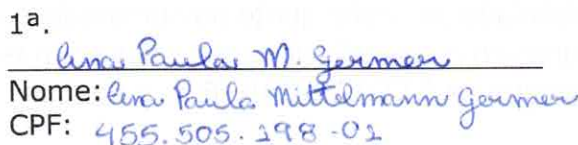 1ª.
Ana Paula M. Germer
Nome: Ana Paula Mittelmann Germer
CPF: 455.505.298-01